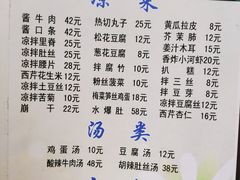 凉 菜
酱牛肉 42元 热切丸子 25元 黄瓜拉皮 8元
酱口条 42元 松花豆腐 12元 芥茉肺 18元
凉拌里脊 25元 葱花豆腐 8元 姜汁木耳 15元
凉拌肚丝 25元 拌腐竹 10元 香炸小河虾 20元
凉拌腰片 28元 粉丝菠菜 10元 扒糕 12元
西芹花生米 12元 梅菜笋丝鸡蛋 18元 拌三丝 8元
凉拌豆芽 12元 拌豆丝 8元
凉拌苦菊 10元 凉拌豆腐丝 12元
崩干 22元 水爆肚 58元 西芹杏仁 12元
汤 类
鸡蛋汤 10元 豆腐汤 12元
酸辣牛肉汤 48元 胡辣肚丝汤 38元